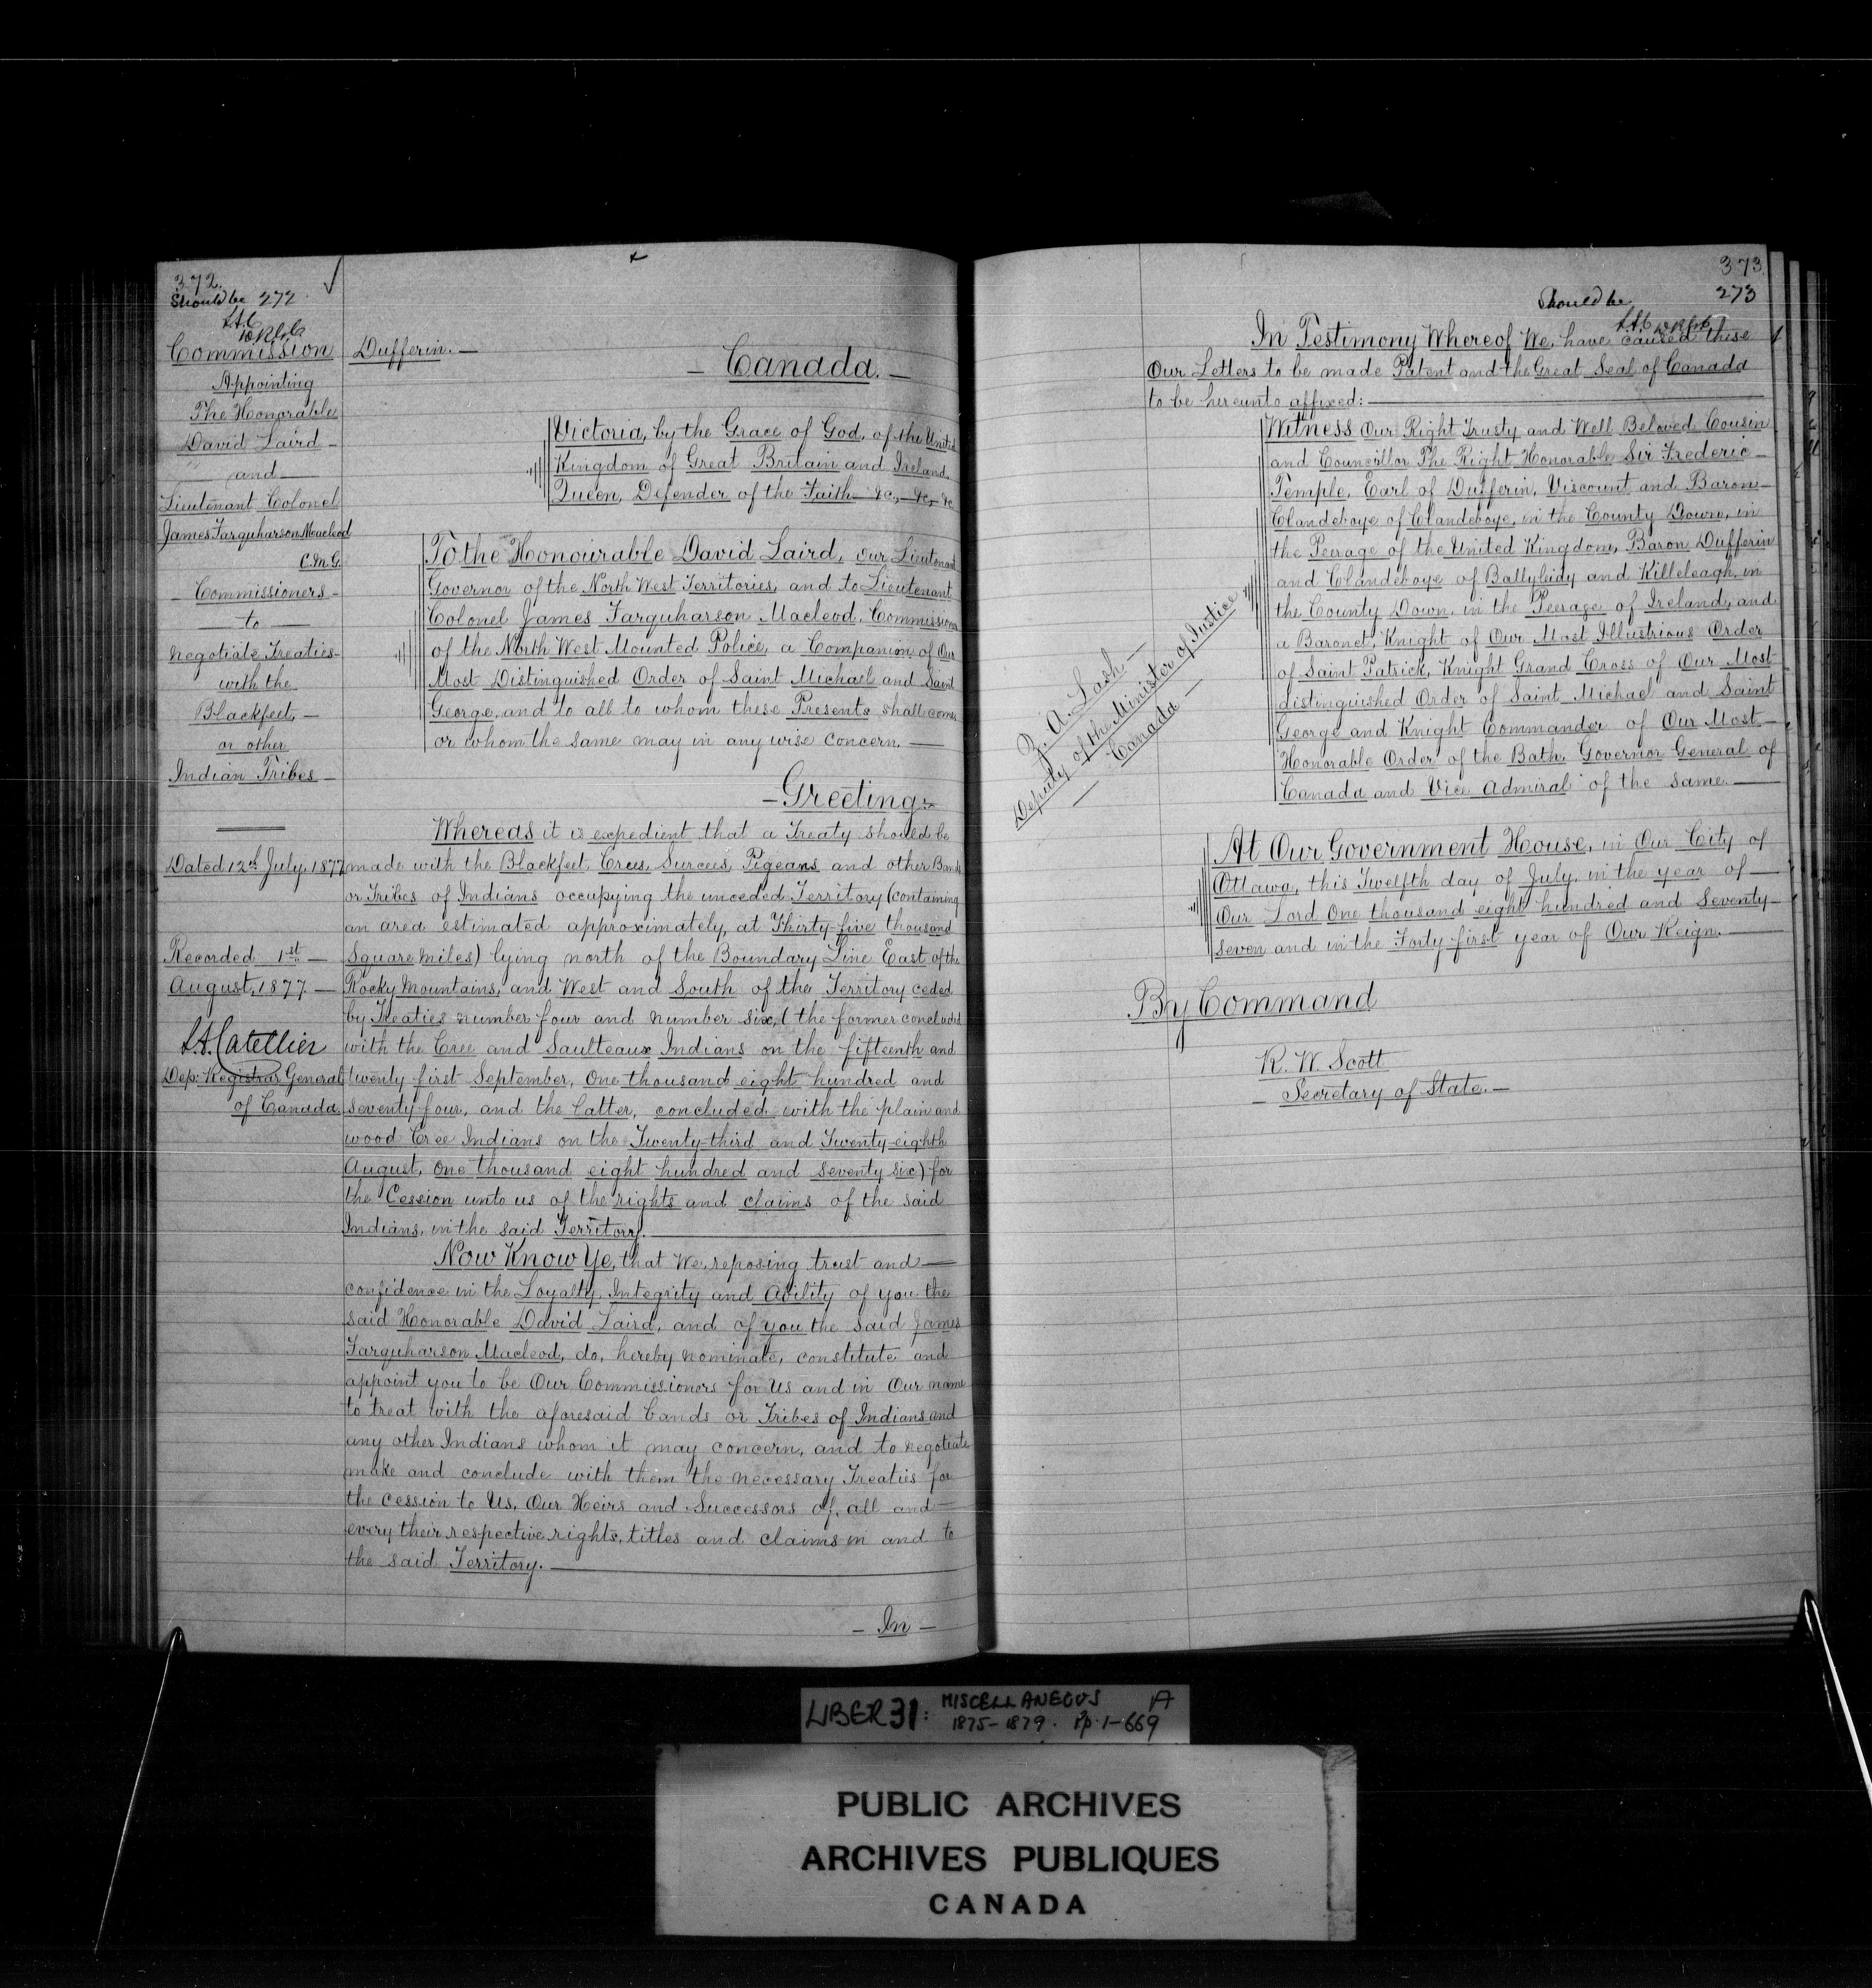 372.
Should be 272
L.A.C.
Commission
Appointing
The Honorable
David Laird -
and
Lieutenant Colonel
James Farquharson Macleod
C.M.G.
- Commissioners -
to
negotiate Treaties -
with the
Blackfeet, -
or other
Indian Tribes -
Dated 12th July, 1877
Recorded 1st -
August, 1877. -
L.A. Catellier
Dep: Registrar General
of Canada.
Dufferin. -
- Canada. -
Victoria, by the Grace of God, of the United
Kingdom of Great Britain and Ireland,
Queen, Defender of the Faith - &c, - &c, - &c
To the Honourable David Laird, our Lieutenant
Governor of the North West Territories, and to Lieutenant
Colonel James Farquharson Macleod, Commissioner
of the North West Mounted Police, a Companion of Our
Most Distinguished Order of Saint Michael and Saint
George, and to all to whom these Presents shall come
or whom the same may in any wise concern. -
- Greeting: -
Whereas it is expedient that a Treaty should be
made with the Blackfeet, Crees, Surcees, Pigeans and other Bands
or Tribes of Indians occupying the unceded Territory (containing
an area estimated approximately, at Thirty-five thousand
Square miles) lying north of the Boundary Line East of the
Rocky Mountains, and West and South of the Territory ceded
by Treaties number four and number six, (the former concluded
with the Cree and Saulteaux Indians on the fifteenth and
twenty first September, One thousand eight hundred and
seventy four, and the latter, concluded with the plain and
wood Cree Indians on the Twenty-third and Twenty-eighth
August, one thousand eight hundred and seventy six) for
the Cession unto us of the rights and claims of the said
Indians, in the said Territory.
Now Know Ye, that We, reposing trust and
confidence in the Loyalty, Integrity and Ability of you the
said Honorable David Laird, and of you the said James
Farquharson Macleod, do, hereby nominate, constitute and
appoint you to be Our Commissioners for Us and in Our name
to treat with the aforesaid bands or Tribes of Indians and
any other Indians whom it may concern, and to negotiate
make and conclude with them the necessary Treaties for
the cession to Us, Our Heirs and Successors of, all and
every their respective rights, titles and claims in and to
the said Territory.
- In -
373.
Should be 273
L.A.C.
In Testimony Whereof We, have caused these
Our Letters to be made Patent and the Great Seal of Canada
to be hereunto affixed:
Witness Our Right Trusty and Well Beloved Cousin
and Councillor The Right Honorable Sir Frederic -
Temple, Earl of Dufferin, Viscount and Baron -
Clandeboye of Clandeboye, in the County Down, in
the Peerage of the United Kingdom, Baron Dufferin
and Clandeboye of Ballyleidy and Killeleagh, in
the County Down, in the Peerage of Ireland, and
a Baronet, Knight of Our Most Illustrious Order
of Saint Patrick, Knight Grand Cross of Our Most
distinguished Order of Saint Michael and Saint
George and Knight Commander of Our Most -
Honorable Order of the Bath. Governor General of
Canada and Vice Admiral of the same. -
Z. A. Lash -
Deputy of the Minister of Justice
- Canada -
At Our Government House, in Our City of
Ottawa, this Twelfth day of July, in the year of -
Our Lord One thousand eight hundred and Seventy -
seven and in the Forty first year of Our Reign. -
By Command
R. W. Scott
- Secretary of State. -
LIBER 31: MISCELLANEOUS A
1875-1879. Pp. 1-669
PUBLIC ARCHIVES
ARCHIVES PUBLIQUES
CANADA